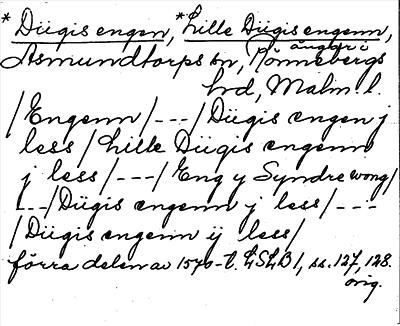 *Dügis engen, *Lille Dügis engenn,
ängar i
Asmundtorps sn, Rönnebergs
hd, Malm. l.
/Engenn/---/Dügis engen j
less/Lille Dügis engenn
j less/---/Eng y Syndre wong/
---/Dügis engenn j less/---
/Dügis engenn ij less/
förra delen av 1570-t. LSLB 1, ss. 127, 128.
orig.